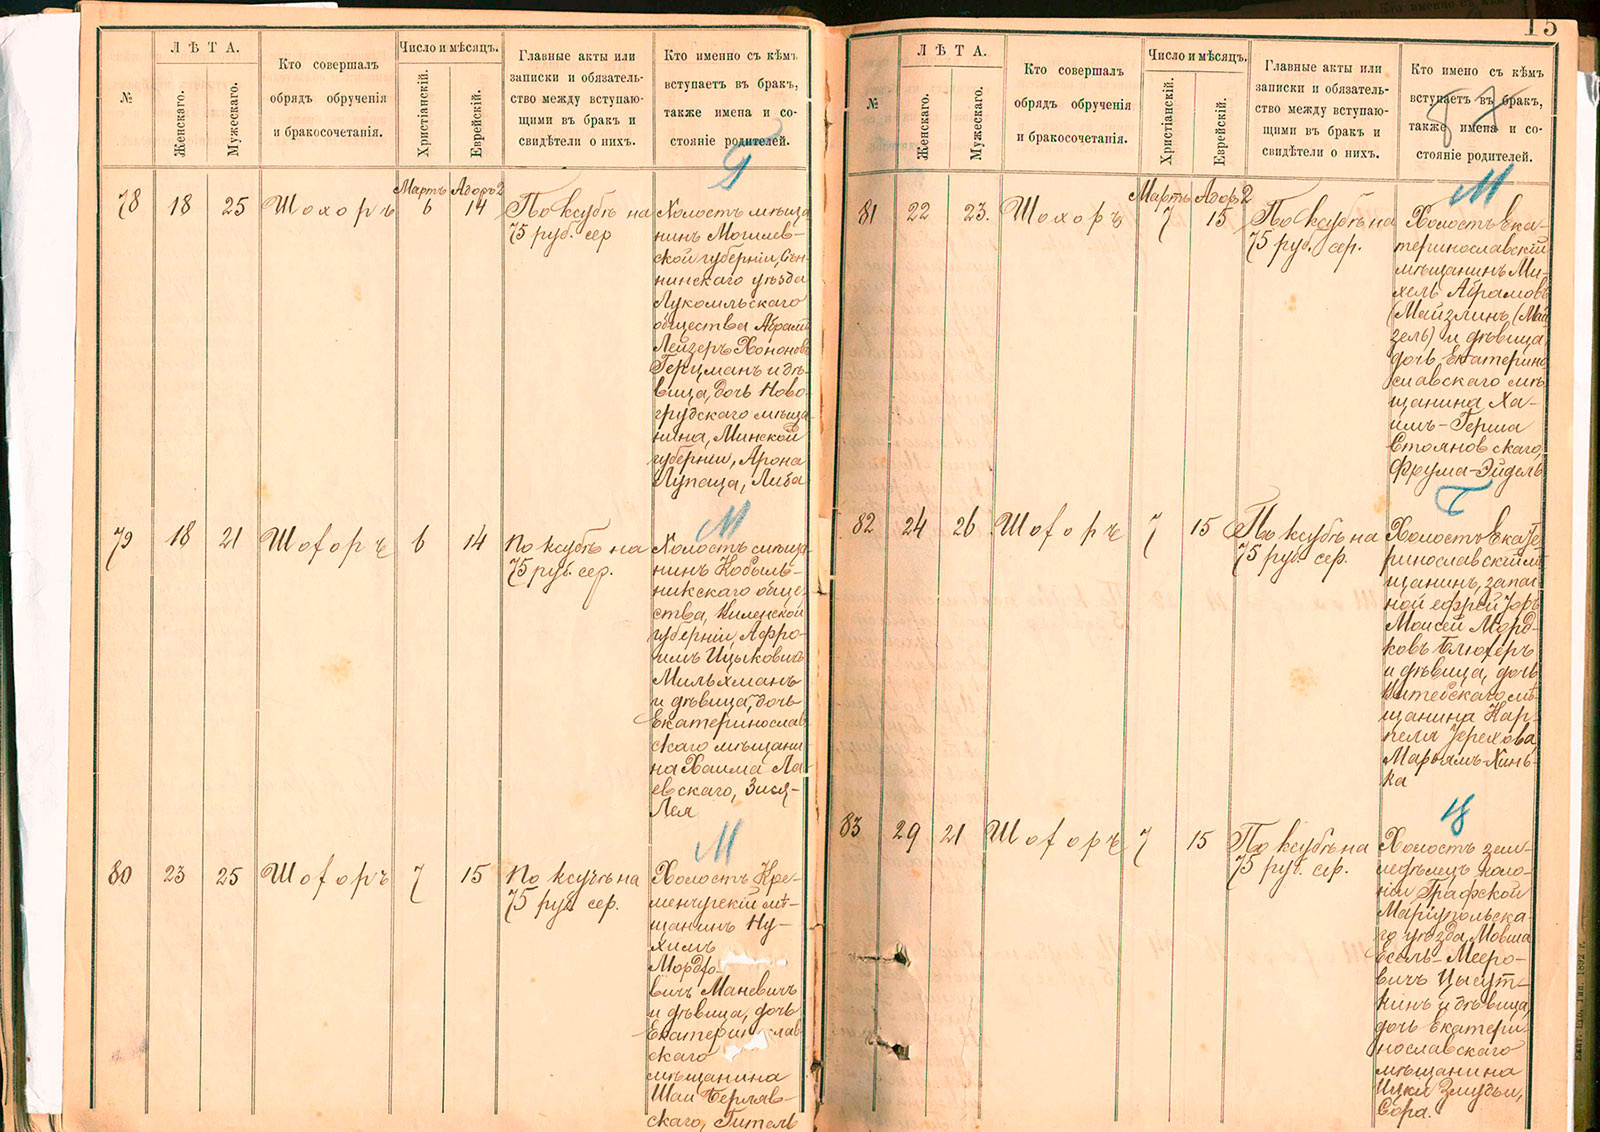 №
ЛѢТА.
Женскаго.
Мужескаго.
Кто совершалъ
обрядъ обрученія
и бракосочетанія.
Число и мѣсяцъ.
Христіанскій.
Еврейскій.
Главные акты или
записки и обязатель-
ство между вступаю-
щими въ бракъ и
свидѣтели о нихъ.
Кто именно съ кѣмъ
вступаетъ въ бракъ,
также имена и со-
стояніе родителей.
Мартъ Адоръ 2
78 18 25 Шохоръ 6 14
По ксубѣ на
75 руб. сер
Холостъ мѣща
нинъ Могилев-
ской губерніи, Сѣн-
нинскаго уѣзда
Лукомльскаго
общества Абрамъ
Лейзеръ Хононовъ
Герцманъ и дѣ-
вица, дочь Ново-
грудскаго мѣща-
нина, Минской
губерніи, Арона
Лупаца, Либа
М
79 18 21 Шохоръ 6 14
По ксубѣ на
75 руб. сер.
Холостъ мѣща-
нинъ Кобыль-
никскаго обще-
ства, Виленской
губерніи Афро-
имъ Ицыковичъ
Мильхманъ
и дѣвица, дочь
Екатеринослав
скаго мѣщани-
на Хаима Ла-
евскаго, Зися-
Лея
М
80 23 25 Шохоръ 7 15
По ксубѣ на
75 руб. сер.
Холостъ Кре-
менчугскій мѣ-
щанинъ Ну-
химъ
Мордхо-
вичъ Маневичъ
и дѣвица, дочь
Екатеринослав
скаго
мѣщанина
Шаи Берляв-
скаго, Гитель
15
№
ЛѢТА.
Женскаго.
Мужескаго.
Кто совершалъ
обрядъ обрученія
и бракосочетанія.
Число и мѣсяцъ.
Христіанскій.
Еврейскій.
Главные акты или
записки и обязатель-
ство между вступаю-
щими въ бракъ и
свидѣтели о нихъ.
Кто имено съ кѣмъ
вступаетъ въ бракъ,
также имена и со-
стояніе родителей.
М
Мартъ Адоръ 2
81 22 23. Шохоръ 7 15
По ксубѣ на
75 руб. сер.
Холостъ Ека-
теринославскій
мѣщанинъ Ми-
хель Абрамовъ
Майзлинъ (Май
зель) и дѣвица,
дочь Екатерино
славскаго мѣ-
щанина Ха-
имъ-Герша
Стояновскаго,
Фрума-Эйдель
Б
82 24 26 Шохоръ 7 15
По ксубѣ на
75 руб. сер.
Холостъ Екате-
ринославскій мѣ
щанинъ, запас-
ной ефрейторъ
Моисей Мордх
ковъ Блюхеръ
и дѣвица, дочь
Витебскаго мѣ-
щанина Кар-
пелъ Орехова,
Марьямъ-Хинь-
ка
83 29 21 Шохоръ 7 15
По ксубѣ на
75 руб. сер.
Холостъ зем-
ледѣлецъ коло-
ніи Графской
Маріупольска-
го уѣзда Мовша
Есель-Мееро-
вичъ
и дѣвица,
дочь Екатери-
нославскаго
мѣщанина
Сора.